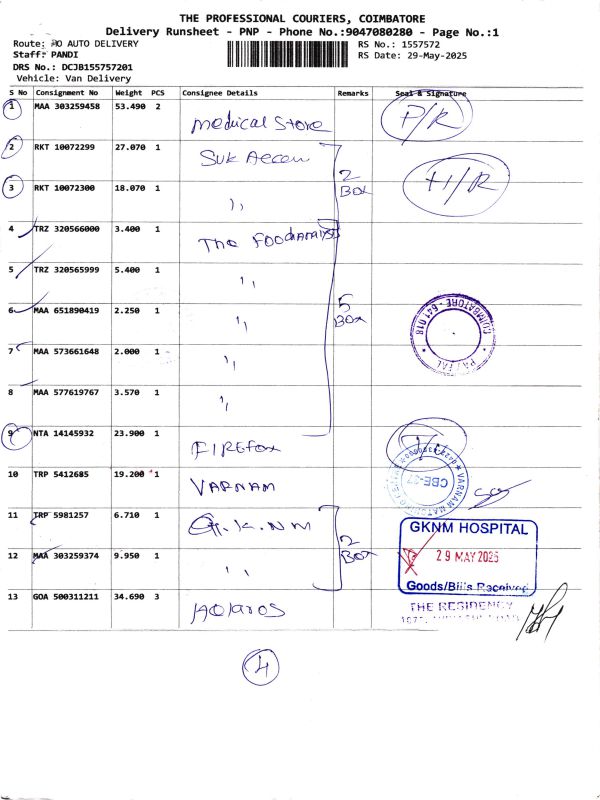 THE PROFESSIONAL COURIERS, COIMBATORE
Delivery Runsheet - PNP - Phone No.:9047080280 - Page No.:1
Route: HO AUTO DELIVERY
RS No.: 1557572
Staff: PANDI
RS Date: 29-May-2025
DRS No.: DCJB155757201
Vehicle: Van Delivery
S No Consignment No Weight PCS Consignee Details Remarks Seal & Signature
1 MAA 303259458 53.490 2 medical Store P/R
2 RKT 10072299 27.070 1
3 RKT 10072300 18.070 1 ,, 2 Box
4 TRZ 320566000 3.400 1 The
5 TRZ 320565999 5.400 1 ,,
6 MAA 651890419 2.250 1 ,, 5 Box
COIMBATORE - 641 018
7 MAA 573661648 2.000 1 ,,
8 MAA 577619767 3.570 1 ,,
9 NTA 14145932 23.900 1 FIREfox
10 TRP 5412685 19.200 1 VARNAM
VARNAM MATCHING
CBE-37
11 TRP 5981257 6.710 1 G.K.NM
GKNM HOSPITAL
29 MAY 2025
Goods/Bills Received
12 MAA 303259374 9.950 1 ,, 2 Box
13 GOA 500311211 34.690 3
THE RESIDENCY
4